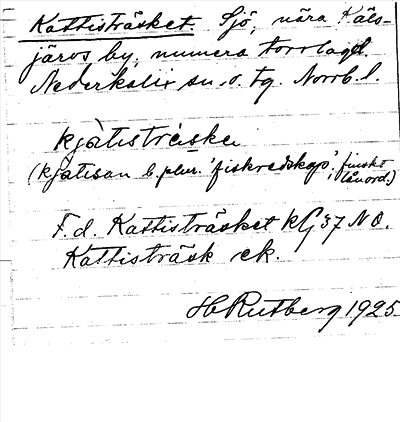 Kattisträsket. Sjö, nära Käls-
järvs by, numera torrlagd.
Nederkalix sn. o. tg. Norrb. l.
kjàtisträ́ske
(kjatisan b. plur. 'fiskredskap', finskt
lånord.)
F.d. Kattisträsket kG 37 NO.
Kattisträsk ek.
H Rutberg 1925